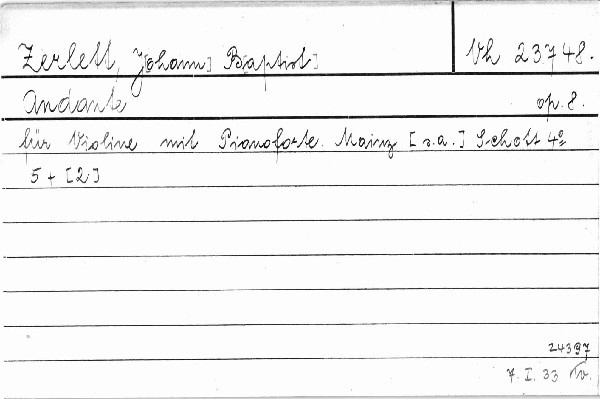 Zerlett, J[ohann] B[aptist] Vh 23748.
Andante op. 8.
für Violine mit Pianoforte. Mainz [s.a.] Schott 4º
5 + [2]
24397
7. I. 33